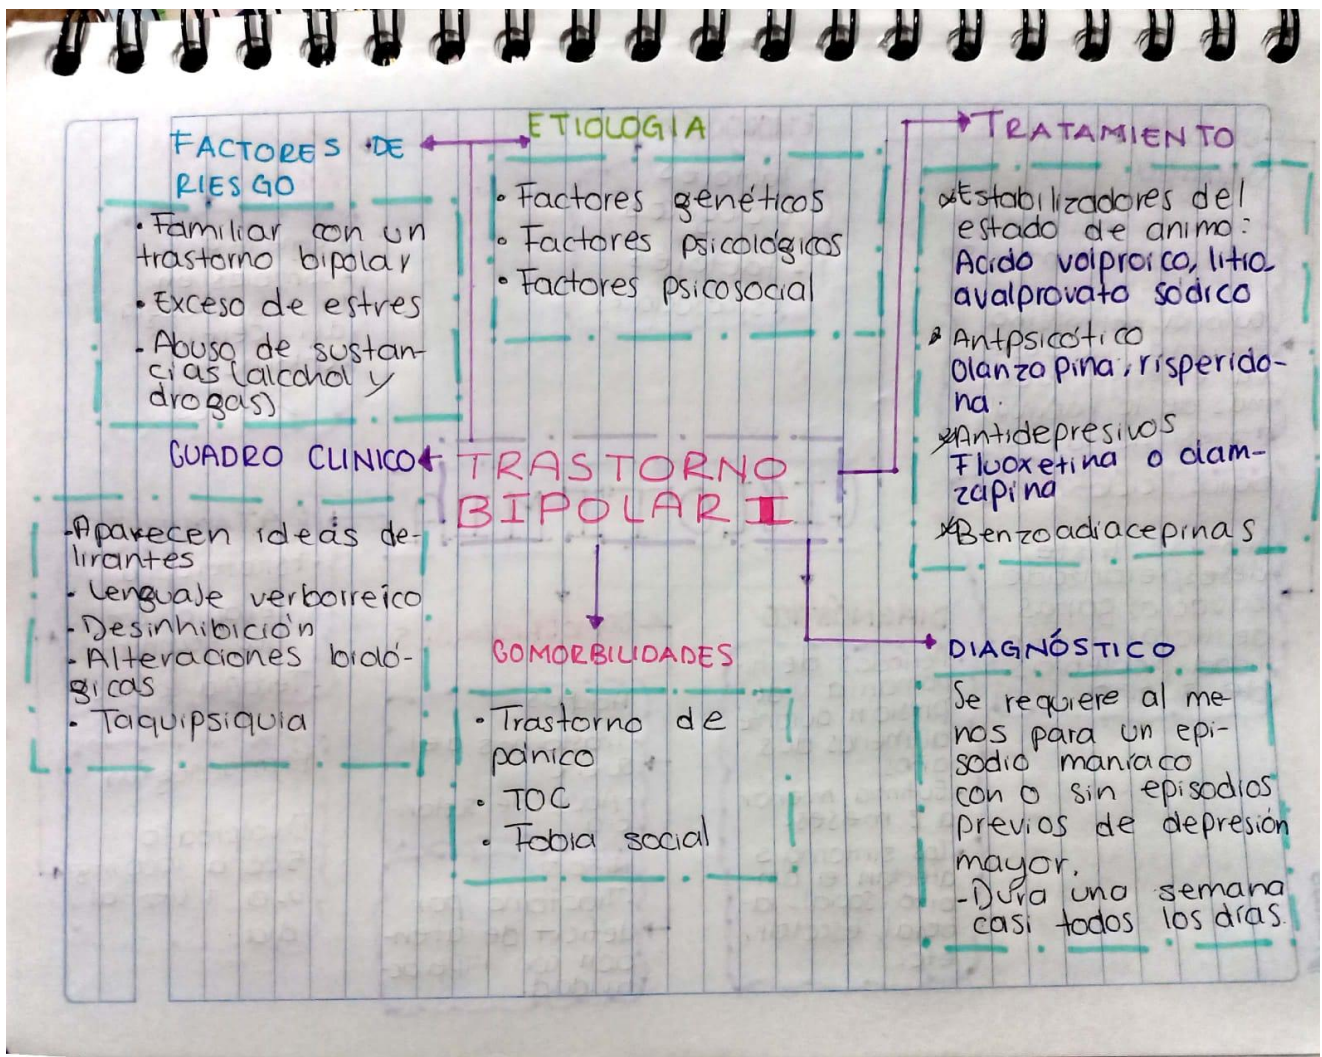 FACTORES DE
RIESGO
• Familiar con un
trastorno bipolar
• Exceso de estres
- Abuso de sustan-
cias (alcohol y
drogas)
ETIOLOGIA
• Factores genéticos
• Factores psicológicos
• Factores psicosocial
TRATAMIENTO
Estabilizadores del
estado de animo:
Acido valproico, litio
avalprovato sódico
Antpsicótico
Olanzapina, risperido-
na.
Antidepresivos
Fluoxetina o clam-
zapina
Benzoadiacepinas
CUADRO CLINICO
- Aparecen ideas de-
lirantes
- Lenguaje verborreico
- Desinhibición
- Alteraciones bioló-
gicas
- Taquipsiquia
TRASTORNO
BIPOLAR I
COMORBILIDADES
• Trastorno de
pánico
• TOC
• Fobia social
DIAGNÓSTICO
Se requiere al me-
nos para un epi-
sodio maníaco
con o sin episodios
previos de depresión
mayor.
- Dura una semana
casi todos los días.